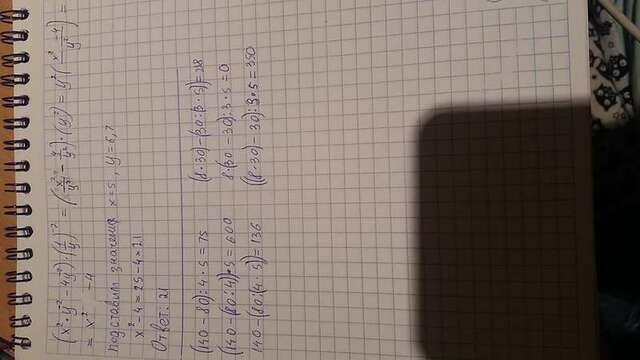 (x²·y⁻² - 4y⁻²)·(1/y)⁻² = (x²/y² - 4/y²)·(y²) = y²(x² - 4/y²) =
= x² - 4
подставим значения x=5, y=6,7
x² - 4 = 25 - 4 = 21
Ответ: 21
(140 - 80):4·5 = 75
(140 - (80:4))·5 = 600
140 - (80:(4·5)) = 136
(8·30) - (30:(3·5)) = 238
8·(30 - 30):3·5 = 0
((8·30) - 30):3·5 = 350